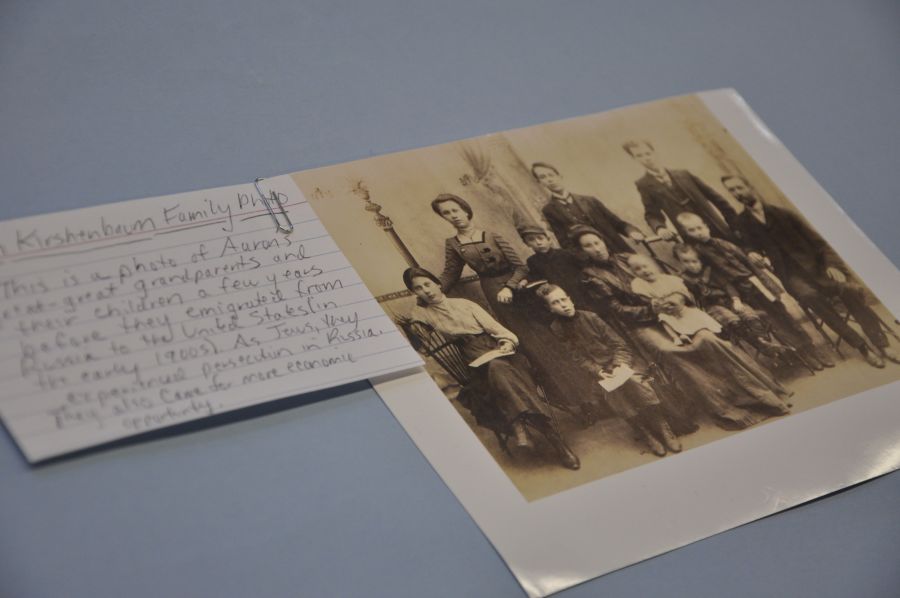 n Kirshenbaum Family Photo
This is a photo of Aaron's
great great grandparents and
their children a few years
before they emigrated from
Russia to the United States (in
the early 1900s). As Jews, they
experienced persecution in Russia.
They also came for more economic
opportunity.